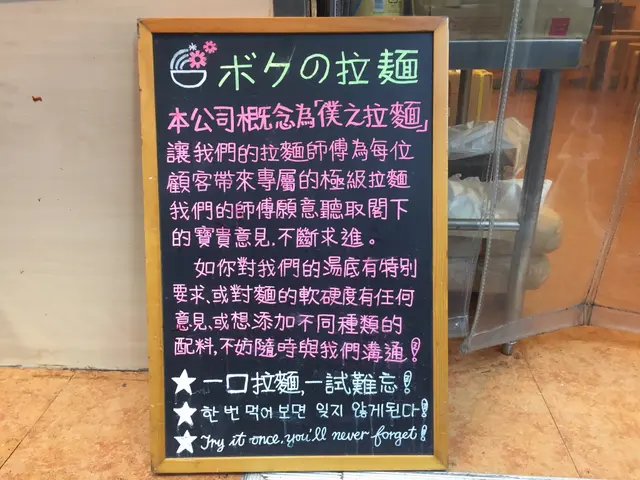 ボクの拉麵
本公司概念為「僕之拉麵」
讓我們的拉麵師傅為每位
顧客帶來專屬的極級拉麵
我們的師傅願意聽取閣下
的寶貴意見,不斷求進。
如你對我們的湯底有特別
要求、或對麵的軟硬度有任何
意見、或想添加不同種類的
配料,不妨隨時與我們溝通!
★一口拉麵,一試難忘!
★한번 먹어보면 잊지 않게된다!
★Try it once, you'll never forget!